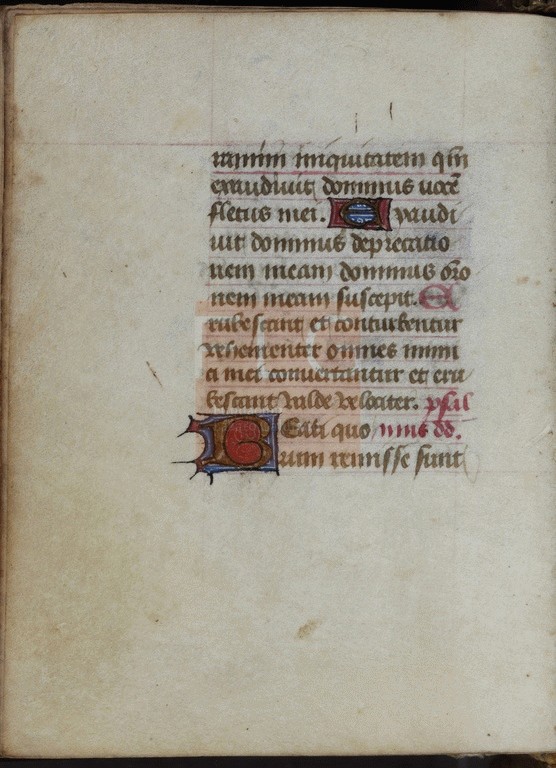 ramini iniquitatem qm̄
exaudiuit dominus uocē
fletus mei. Exaudi
uit dominus deprecatio
nem meam dominus or̄o
nem meam suscepit. E
rubescant et conturbentur
vehementer omnes inimi
ci mei conuertantur et eru
bescant valde velociter. psal
Beati quo mus dd̄.
rum remisse sunt